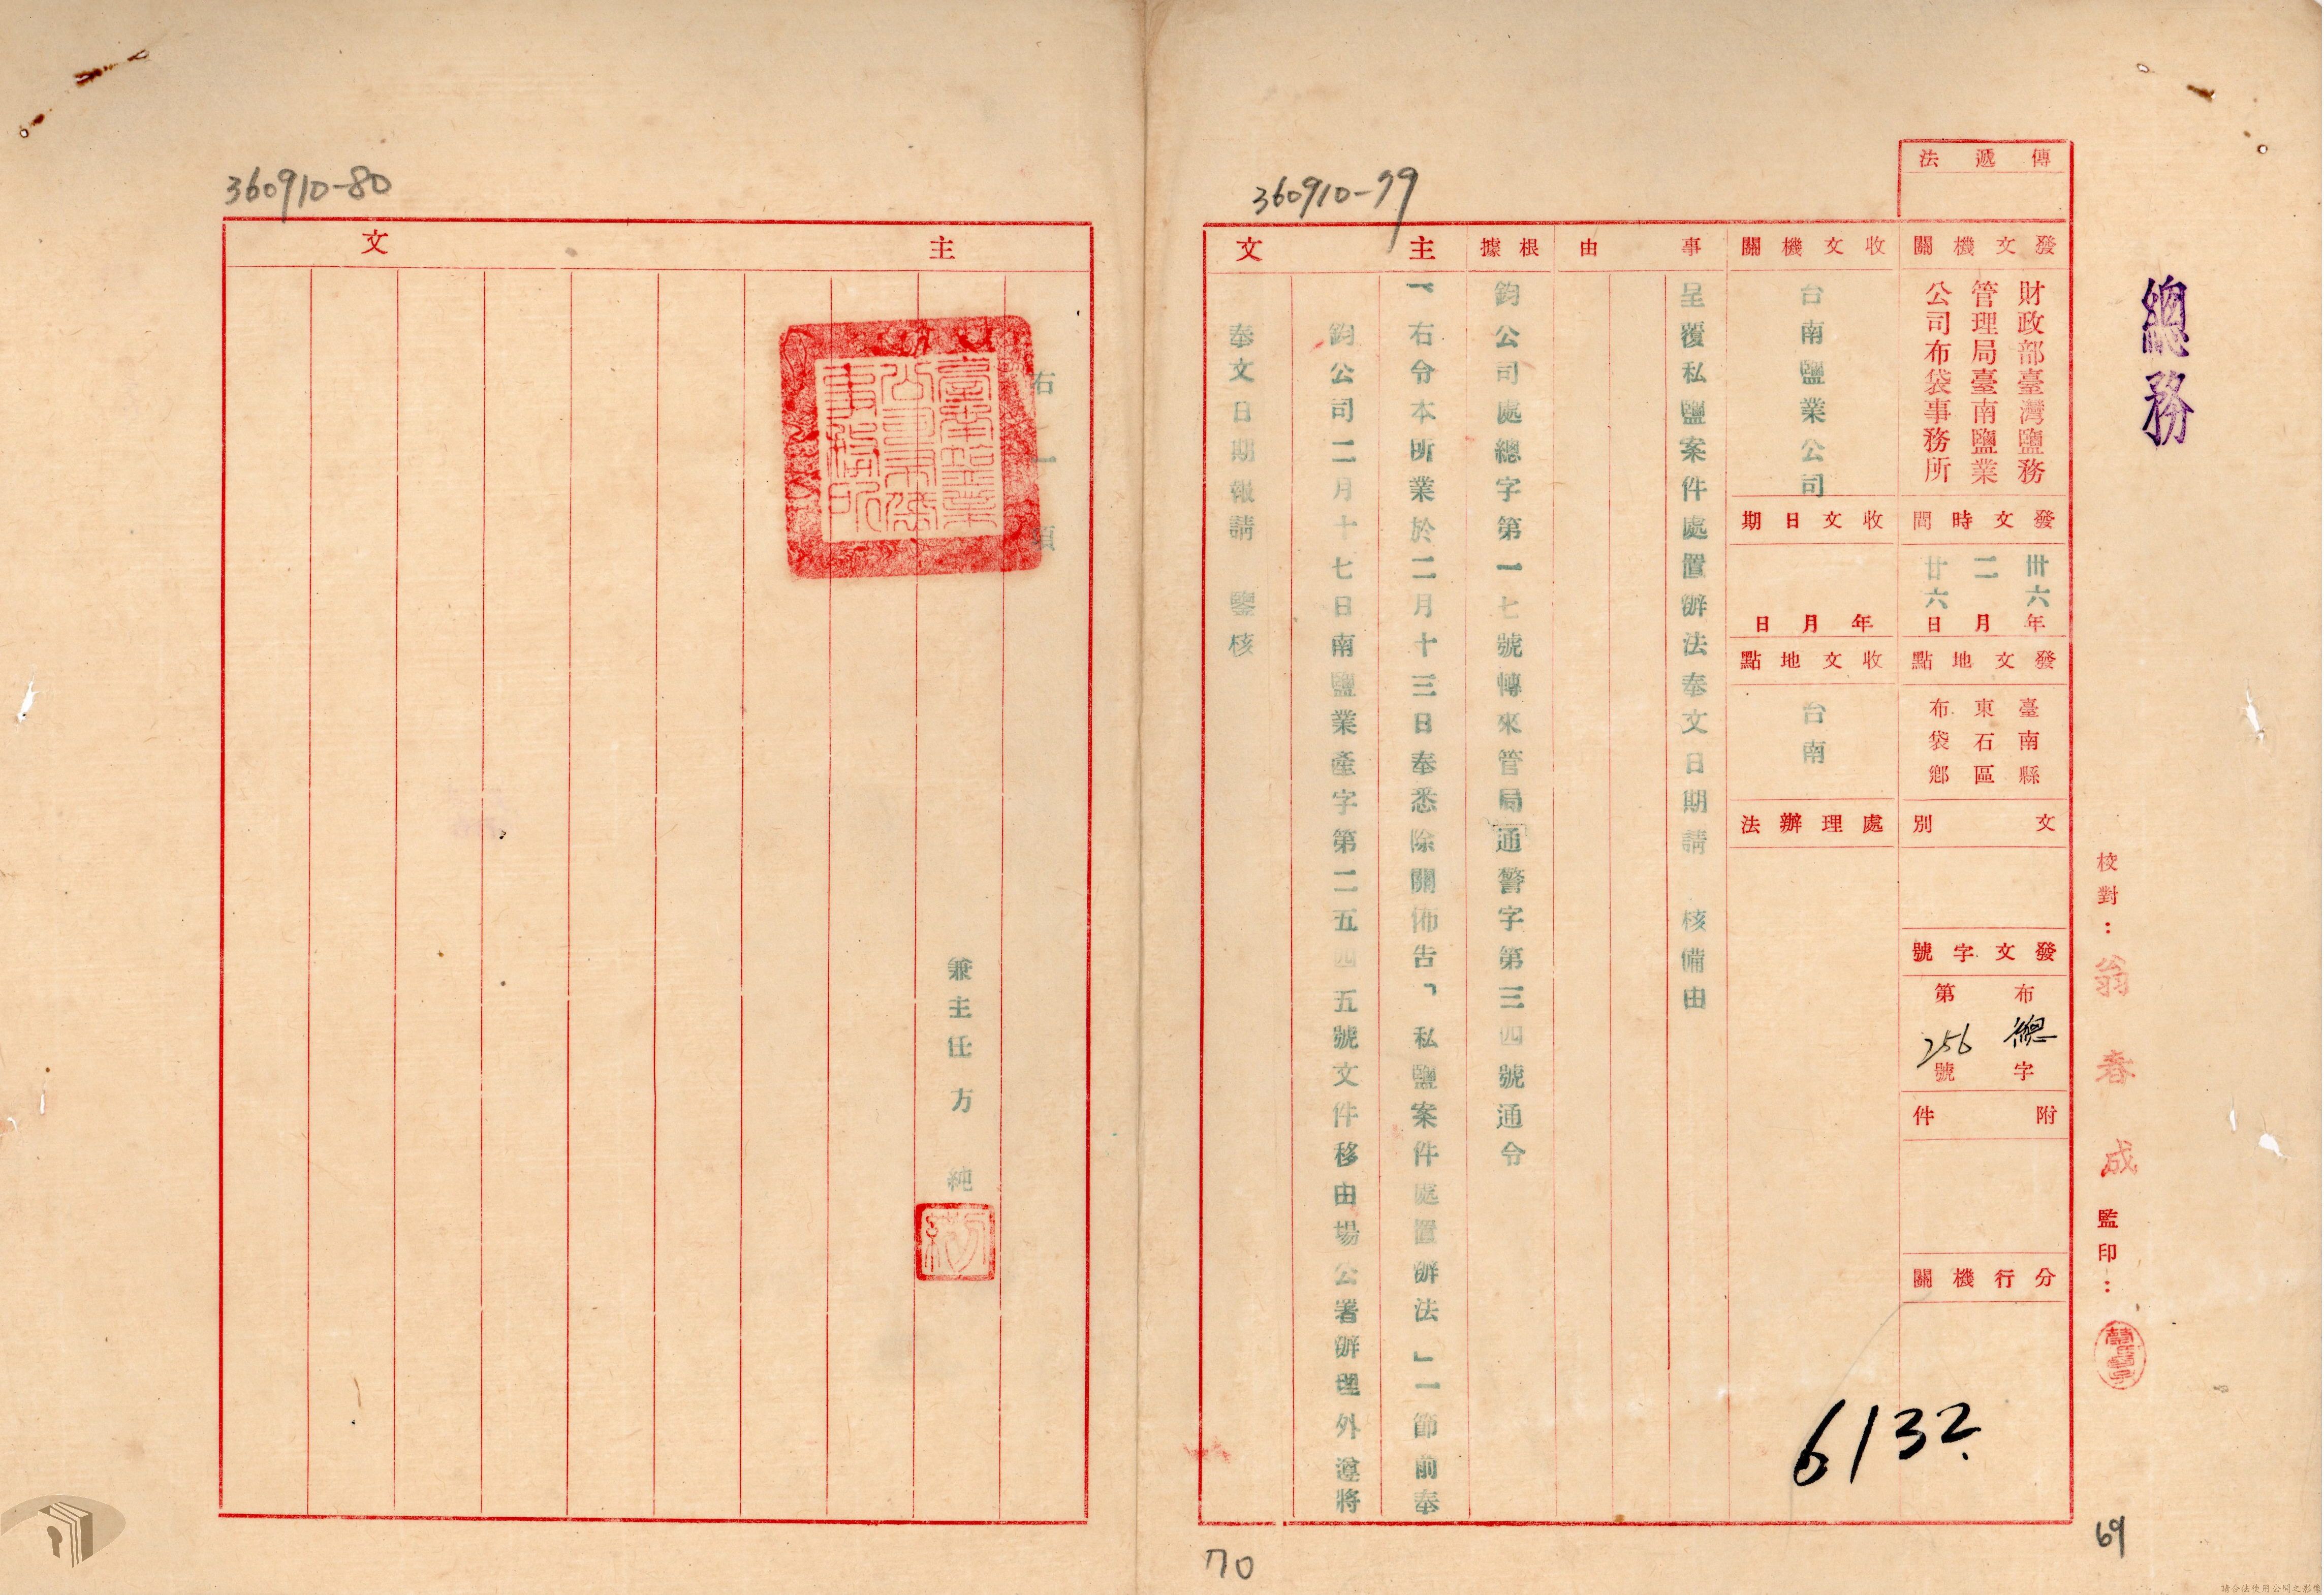 總務
傳遞法
發文機關
財政部臺灣鹽務
管理局臺南鹽業
公司布袋事務所
發文時間
卅六年
二月
廿六日
發文地點
臺南縣
東石區
布袋鄉
文別
發文字號
布總字
第256號
附件
分行機關
校對：翁春成 監印：
收文機關
台南鹽業公司
收文日期
年月日
收文地點
台南
處理辦法
6132.
事由
呈覆私鹽案件處置辦法奉文日期請 核備由
根據
鈞公司處總字第一七號轉來管局通警字第三四號通令
主文
一、右令本所業於二月十三日奉悉除關佈告「私鹽案件處置辦法」一節前奉
鈞公司二月十七日南鹽業產字第二五四五號文件移由場公署辦理外遵將
奉文日期報請 鑒核
360910-79
69
70
360910-80
主文
右一項
兼主任方 純
臺南鹽業公司布袋事務所
請合法使用公開之影像